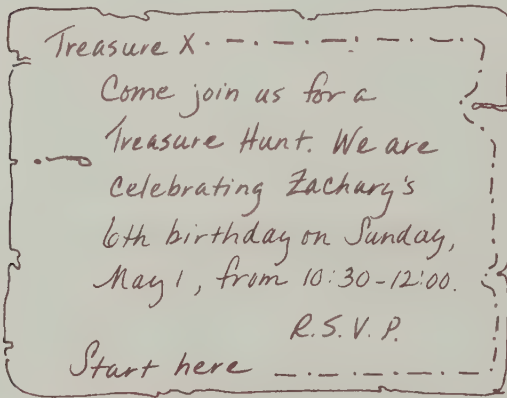 Treasure X
Come join us for a
Treasure Hunt. We are
celebrating Zachary's
6th birthday on Sunday,
May 1, from 10:30-12:00.
R.S.V.P.
Start here